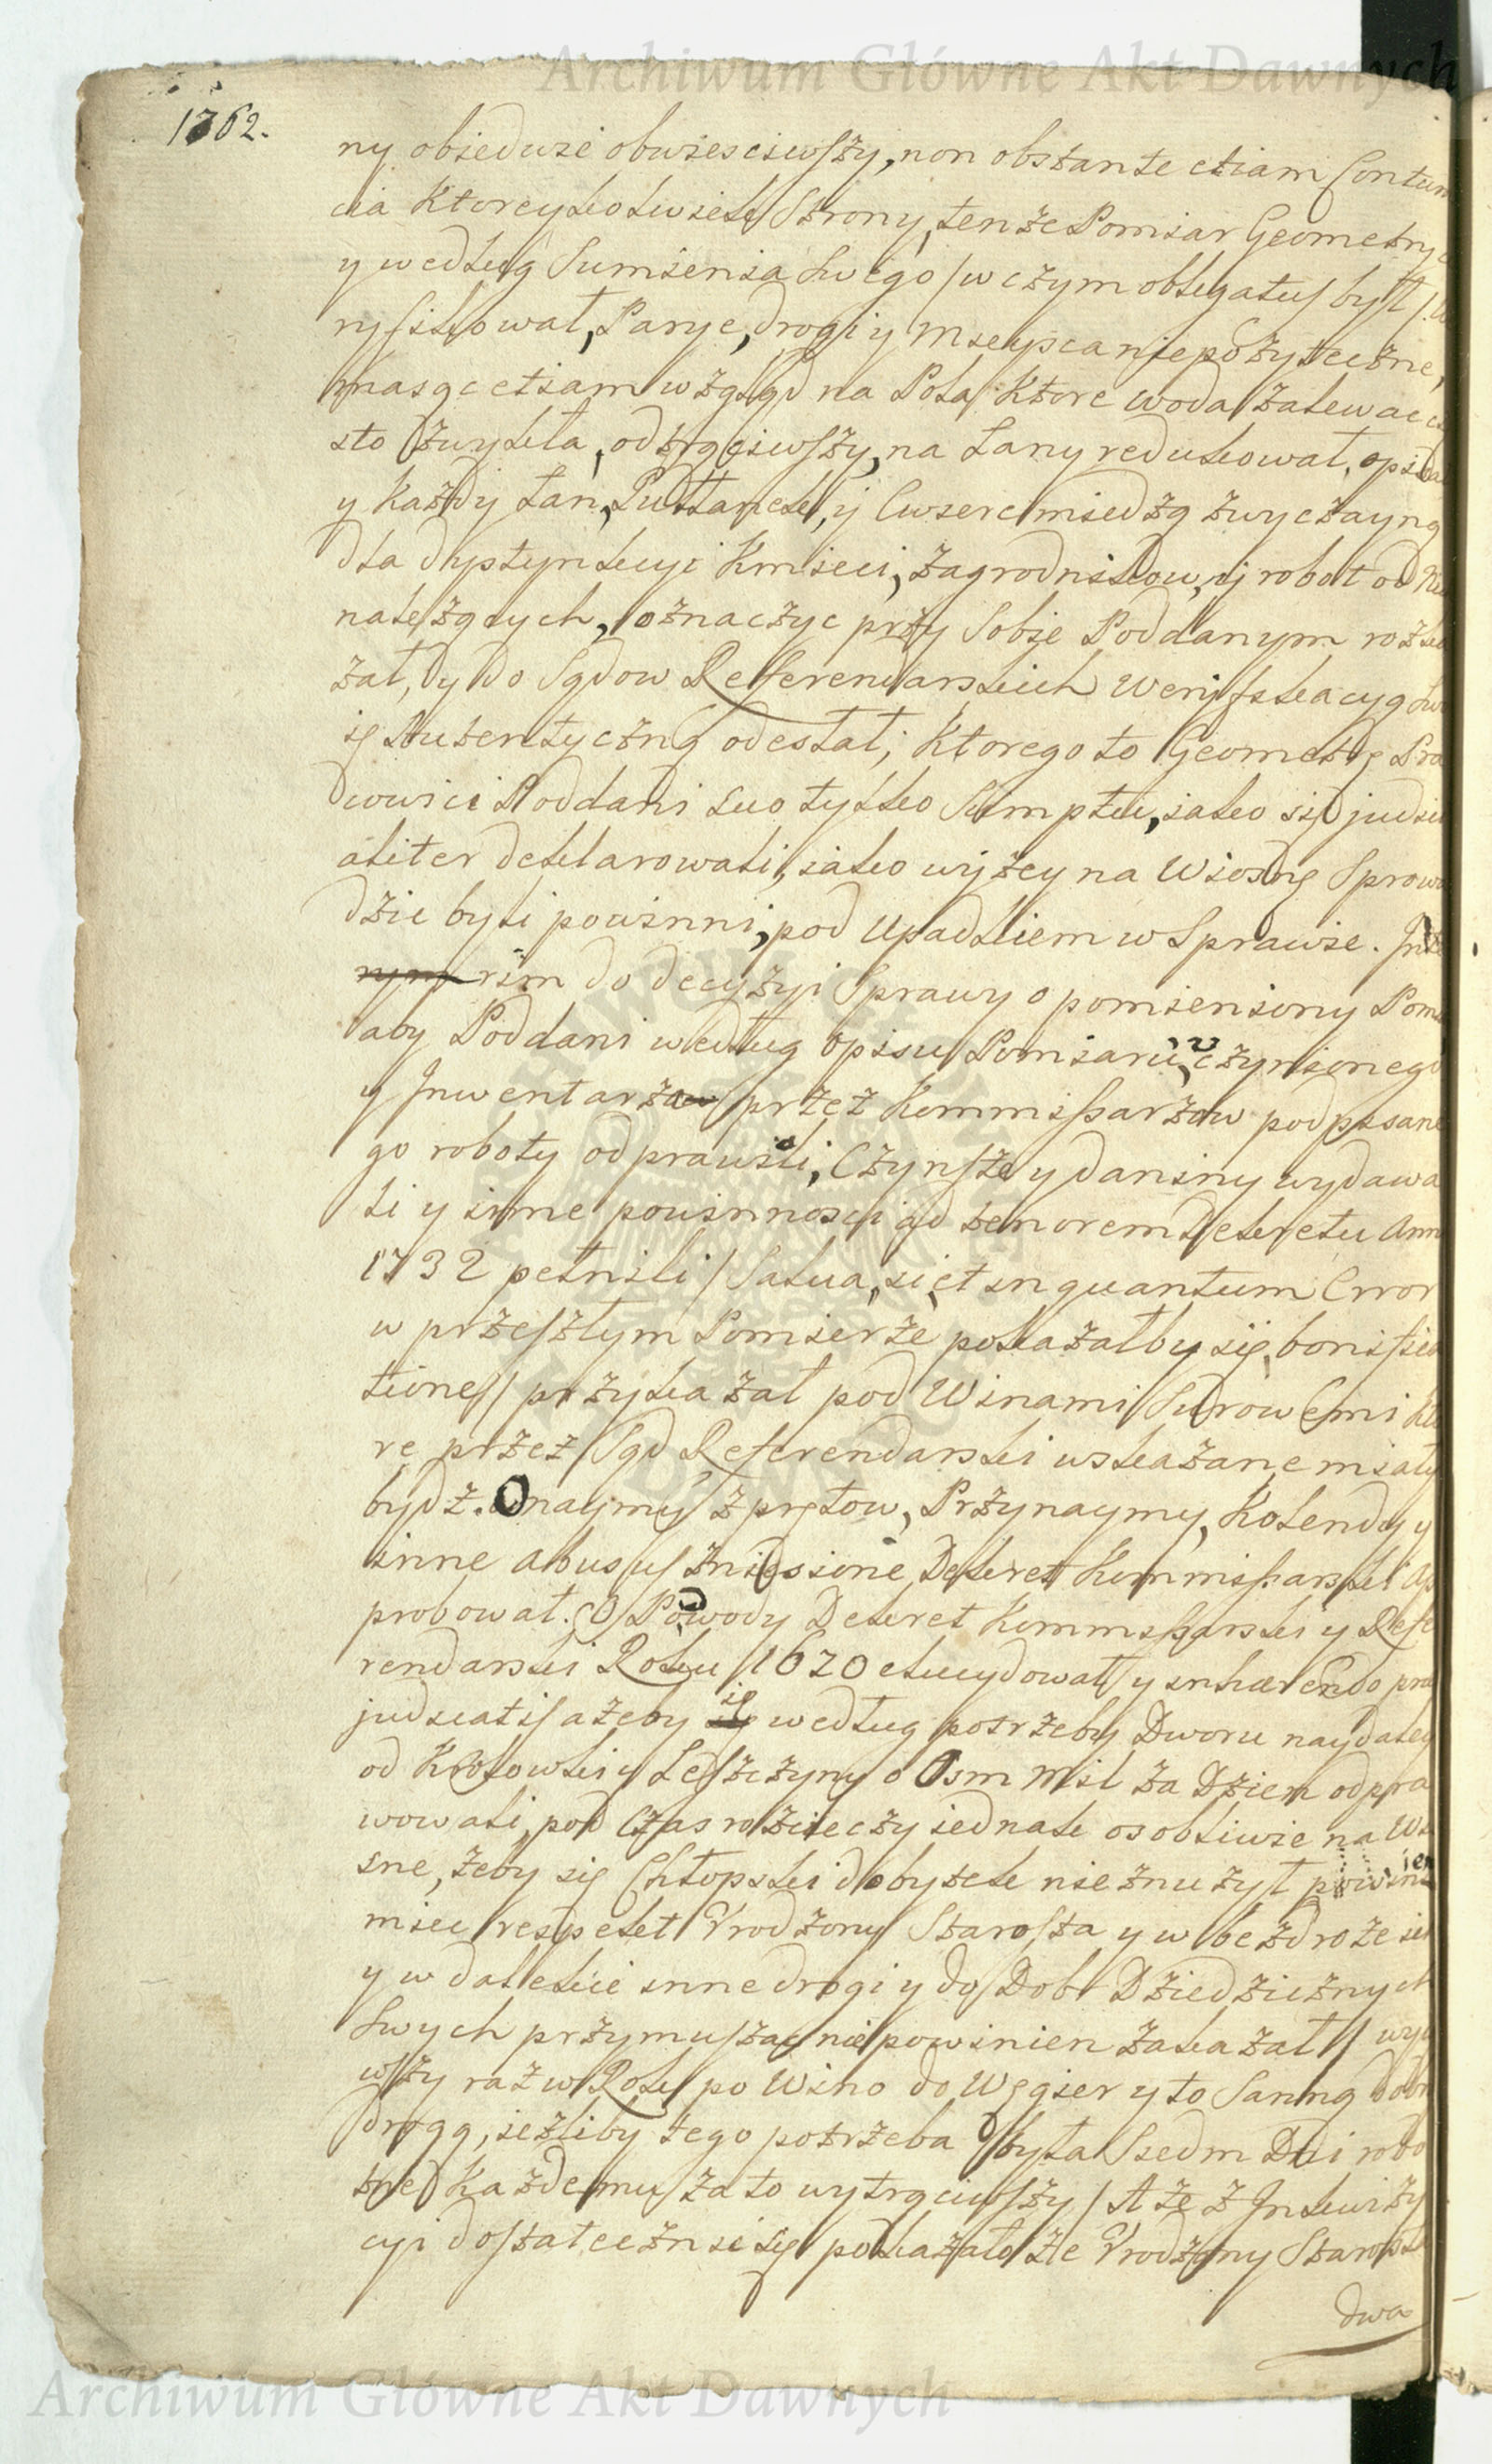 Archiwum Główne Akt Dawnych
1762.
ny obiedwie obwiesciwszy, non obstante etiam Contum
cia ktoreykolwiek Strony, tenże Pomiar Geometry
y według Sumienia swego / w czym obligatus był /
ryfikował, Parye, drogi y mieysca niepożyteczne,
maiąc etiam wzgląd na Pola ktore woda zalewac
sto zwykła, odtrąciwszy, na Łany redukował, opis
y każdy Łan, Pułłanek, y Cwierc miedzą zwyczayną
dla dystynkcyi Kmieci, Zagrodnikow, y robot od
należących, oznaczyc przy Sobie Poddanym rozka
zał, y do Sądow Referendarskich Weryfikacyą sw
ię Autentyczną odesłał; Ktorego to Geometrę Pra
cowici Poddani suo tylko Sumptu, iako się judic
aliter deklarowali, iako wyżey na Wiosnę Sprowa
dzic byli powinni, pod Upadkiem w Sprawie. Inte
rim do decyzyi Sprawy o pomieniony Pom
aby Poddani według opisu Pomiaru, czynionego
y Inwentarza przez Kommissarzow podpisane
go roboty odprawili, Czynsze y daniny wydawa
li y inne powinnosci ad tenorem Dekretu Ann
1732 pełnili / Salua, si et in quantum Error
w przeszłym Pomierze pokazałby się, bonifica
tione / przykazał pod Winami Surowemi kto
re przez Sąd Referendarski wskazane miały
bydz. O naymy z prętow, Przynaymy, Kolendy y
inne abusus zniesione Dekret Kommissarski Ap
probował. O Powody Dekret Kommissarski y Refe
rendarski Roku 1620 elucydował y inhærendo præ
judicatis ażeby się według potrzeby Dworu naydaley
od Krotowki y Ledszczyny o Osm Mil za Dzien odpra
wowali, pod Czas rozcieczy iednak osobliwie na Wi
snę, żeby się Chłopski dobytek nie znużył powinien
miec respekt Urodzony Starosta y w bezdroże ich
y w dalekie inne drogi y do Dobr Dziedzicznych
swych przymuszac nie powinien zakazał / wyi
wszy raz w Rok po Wino do Węgier y to Sanną dobr
drogą, ieżliby tego potrzeba była Siedm Dni robo
tnę każdemu za to wytrąciwszy / A że z Inkwizy
cyi dostatecznie się pokazało że Urodzony Starosta
dwa
Archiwum Główne Akt Dawnych